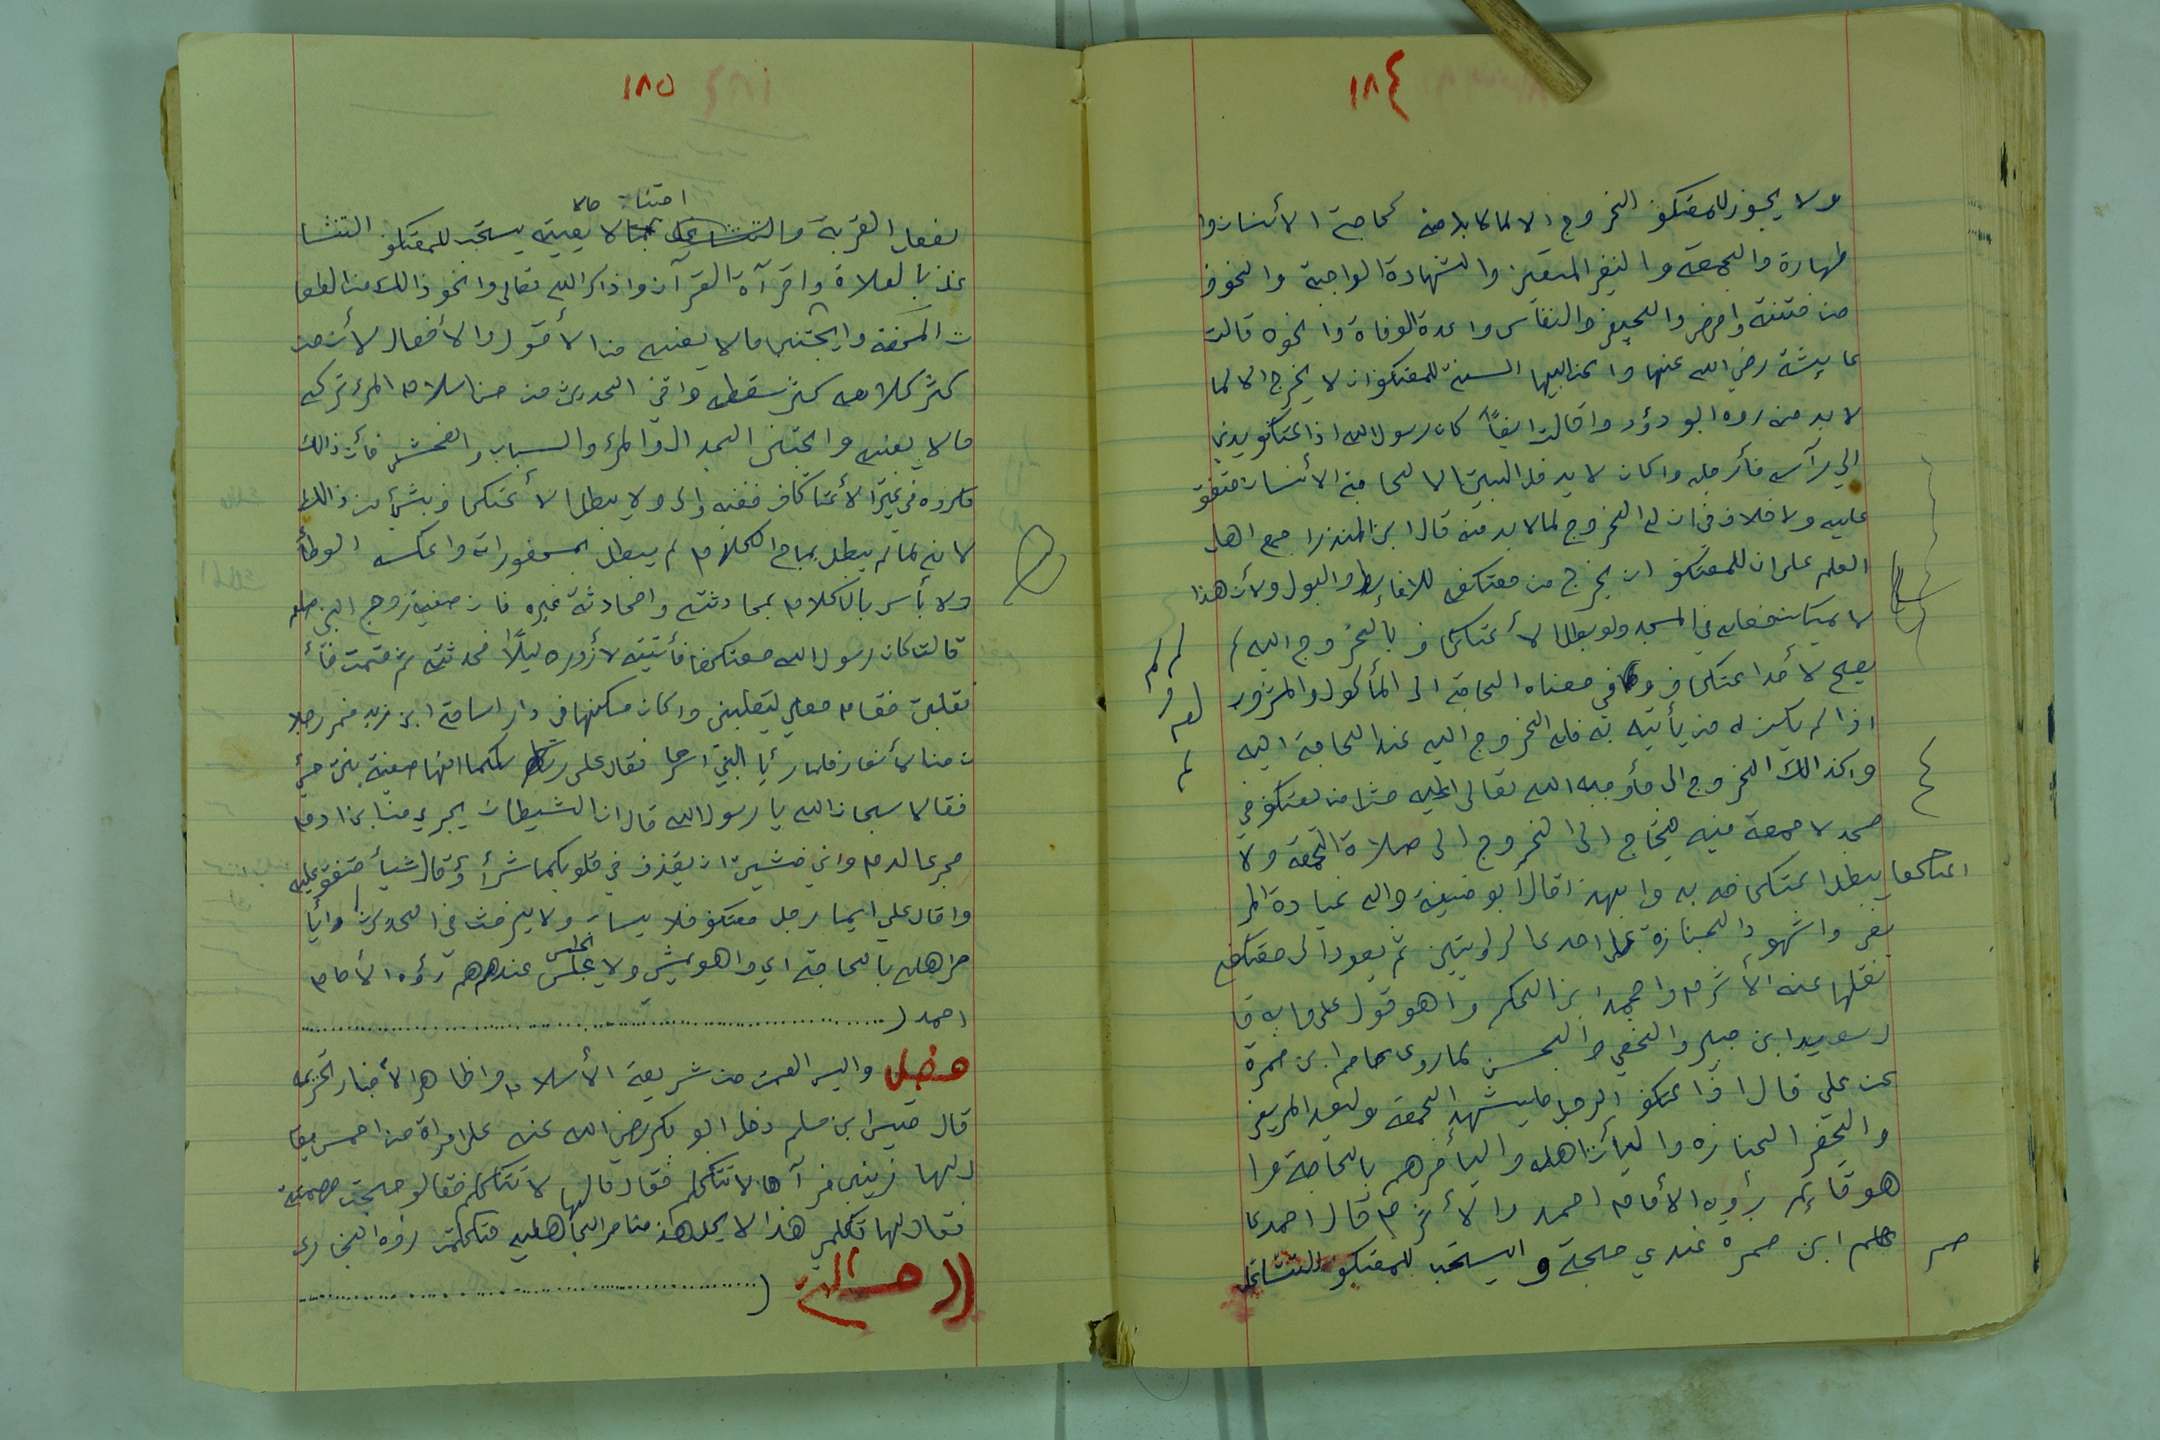 ١٨٤
ولا يجوز للمعتكف الخروج الا لما لا بد منه كحاجة الأنسان وا
طهارة والجمعة والنفر المتعين والشهادة الواجبة والخوف
من فتنة وامرض والحيض والنفاس واعدة الوفاة وانحوه قالت
عايشة رضي الله عنها وا السنة للمعتكف ان لا يخرج الا لما
لا بد منه روه ابو دؤد واقالت ايضاً كان رسول الله اذا اعتكف يدني
الي رآسه فأرجله واكان لا يدخل البيت الا لحاجة الأنسان متفق
عليه ولا خلاف في ان له الخروج لما لا بد منه قال ابن المنذر اجمع اهل
العلم على ان للمعتكف ان يخرج من معتكفه للاغايط والبول ولأن هذا
لا يمكن فعله في المسجد ولو بطل الأعتكاف بالخروج اليه لم
يصح لأحد اعتكاف وفي معناه الحاجة الى المأكول والمشروب
اذا لم يكن له من يأتيه به فله الخروج اليه عند الحاجة اليه
واكذالك الخروج الى مأوجبه الله تعالى عليه مثل من يعتكف في
مسجد لا جمعة فيه فيحتاج الى الخروج الى صلاة الجمعة ولا
يبطل اعتكافه به وابهذا قال أبو حنيفة واله عيادة المر
اعتكافا
يض واشهود الجنازة على احدى الروايتين ثم يعود الى معتكفه
نقلها عنه الأثرم وامحمد ابن الحكم واهو قول علي وابه قا
ل سعيد ابن جبير والنخعي والحسن لما روى عاصم ابن ضمرة
عن علي قال اذا اعتكف الرجل فليشهد الجمعة وليعد المريض
واليحضر الجنازه واليأت اهله واليأمرهم بالحاجة وا
هو قائم رؤوه الأمام احمد والأثرم قال احمد عا
صم ابن ضمره عندي حجة وايستحب للمعتكف التشاغل
صم
١٨٥
اجتناب مالا
بفعل القربة والتشاغل مالا يعنيه يستحب للمعتكف التشا
غل بالصلاة واقرآة القرآن واذكر الله تعالى وانحو ذالك من الطعا
ت المحضة وايجتنب مالا يعنيه من الأقول والأفعال لأن من
كثر كلامه كثر سقطه وافي الحديث من حسن اسلام المرء تركه
مالا يعنيه وايجتنب الجدال والمرء والسباب والفحش فأن ذالك
مكروه في غير الأعتكاف ففيه اولى ولا يبطل الأعتكاف بشيء من ذالك
لانه لما لم يبطل بمباح الكلام لم يبطل بمحظوراته واعكسه الوطأ
ولا بأس بالكلام لمحادثته وامحادثة غيره فان صفية زوج النبي صلم
قالت كان رسول الله معتكفا فأتيته لأزوره ليلاً فحدثته ثم قمت فأ
نقلبت فقام معي ليقلبني واكان مسكنها في دار اسامة ابن زيد فمر رجلا
ن من الأنصار فلما رأيا النبي اسرعا فقال على رسلكما انها صفية بنت حيي
فقالا سبحان الله يا رسول الله قال ان الشيطان يجري من ابن ادم
مجرى الدم واني خشيت ان يقذف في قلوبكما شرأ أوقال شيأ متفق عليه
واقال علي ايما رجل معتكف فلا يساب ولا يرفث في الحديث وايأ
مر اهله بالحاجة اي واهو يمشي ولا يجلس عندهم رؤه الأمام
يجلس
احمد (
فصل واليس الصمت من شريعة الأسلام واظاهر الأخبار تحريمه
قال قيس ابن مسلم دخل ابو بكر رضي الله عنه على امراة من احمس يقا
ل لها زينب فرآها لا تتكلم فقال مالها لا تتكلم فقالو حجت مصمتة
فقال لها تكلمي هذا لا يحل هذ من امر الجاهلية فتكلمت رؤه البخاري
(( مسألة (